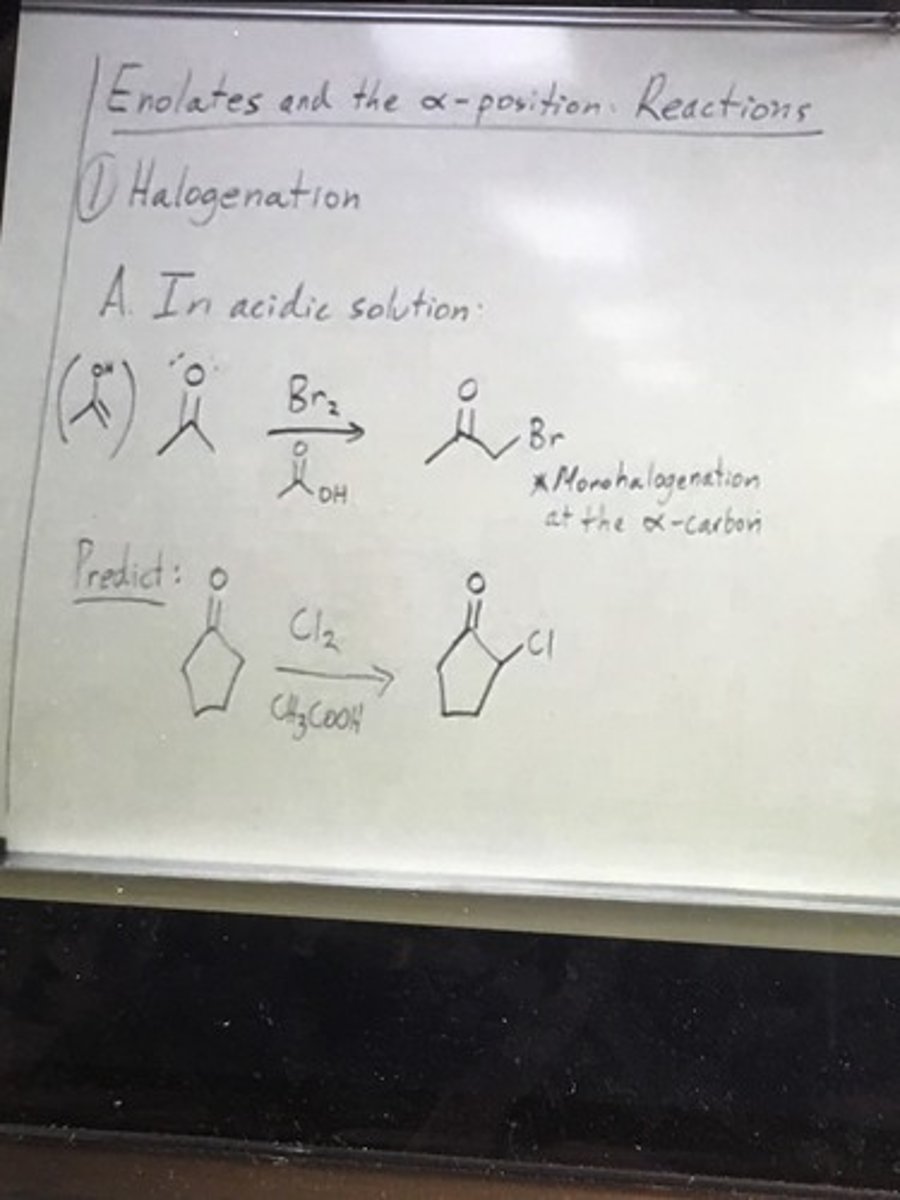 Enolates and the α-position: Reactions
① Halogenation
A. In acidic solution:
OH
O
Br₂
O
OH
O
Br
*Monohalogenation
at the α-carbon
Predict:
O
Cl₂
CH₃COOH
O
Cl